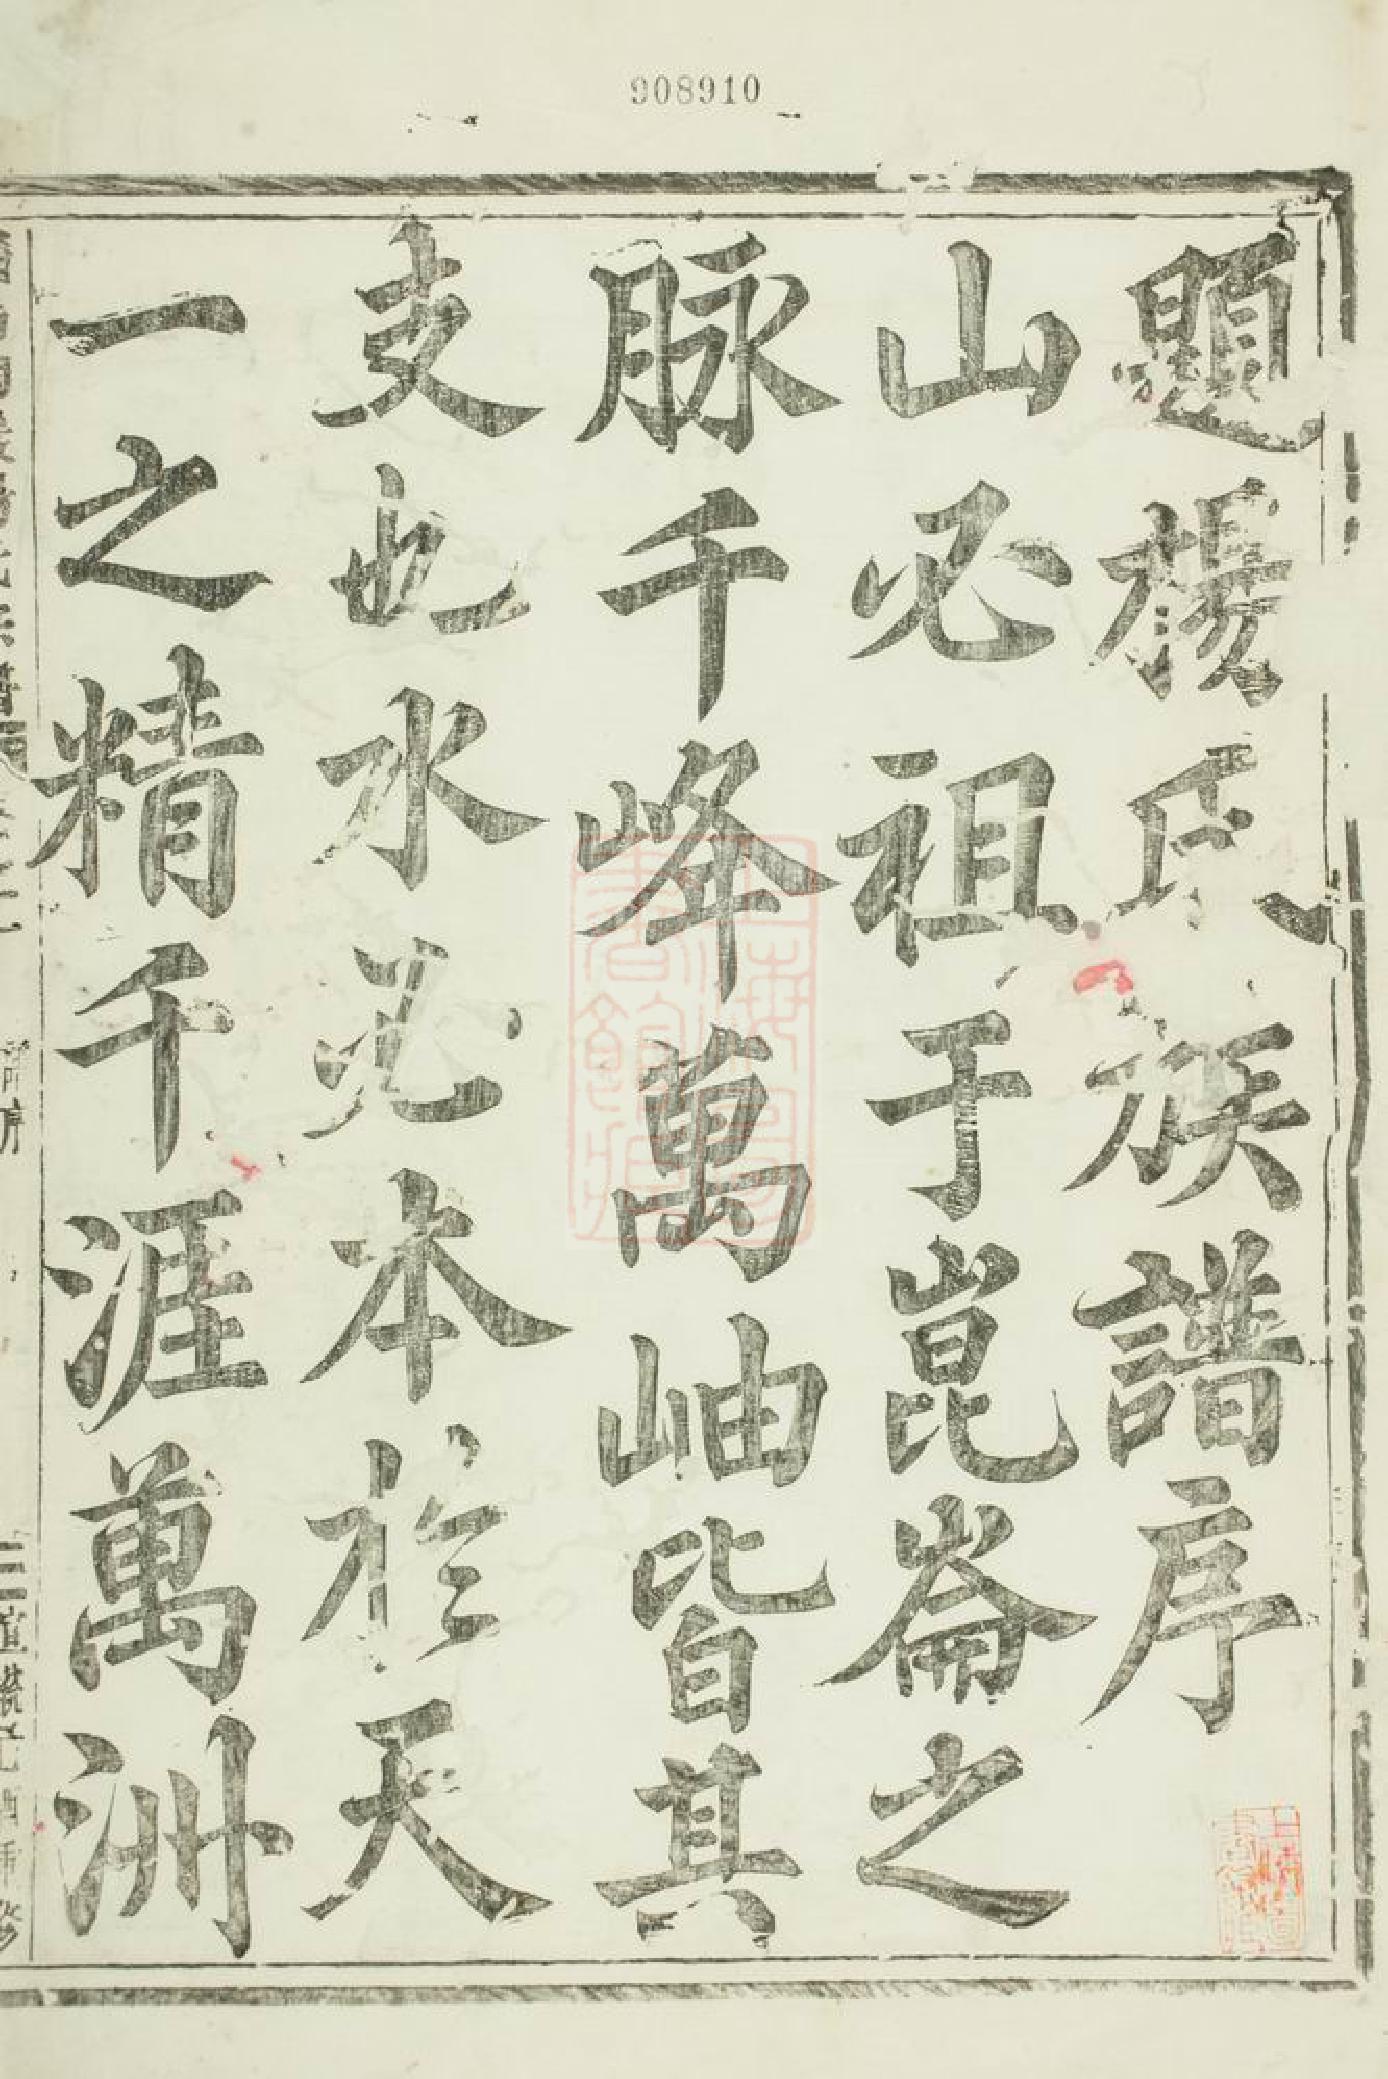 908910
題楊氏族譜序
山必祖于崑崙之
脉千峰萬岫皆其
支也水必本於天
一之精千涯萬洲